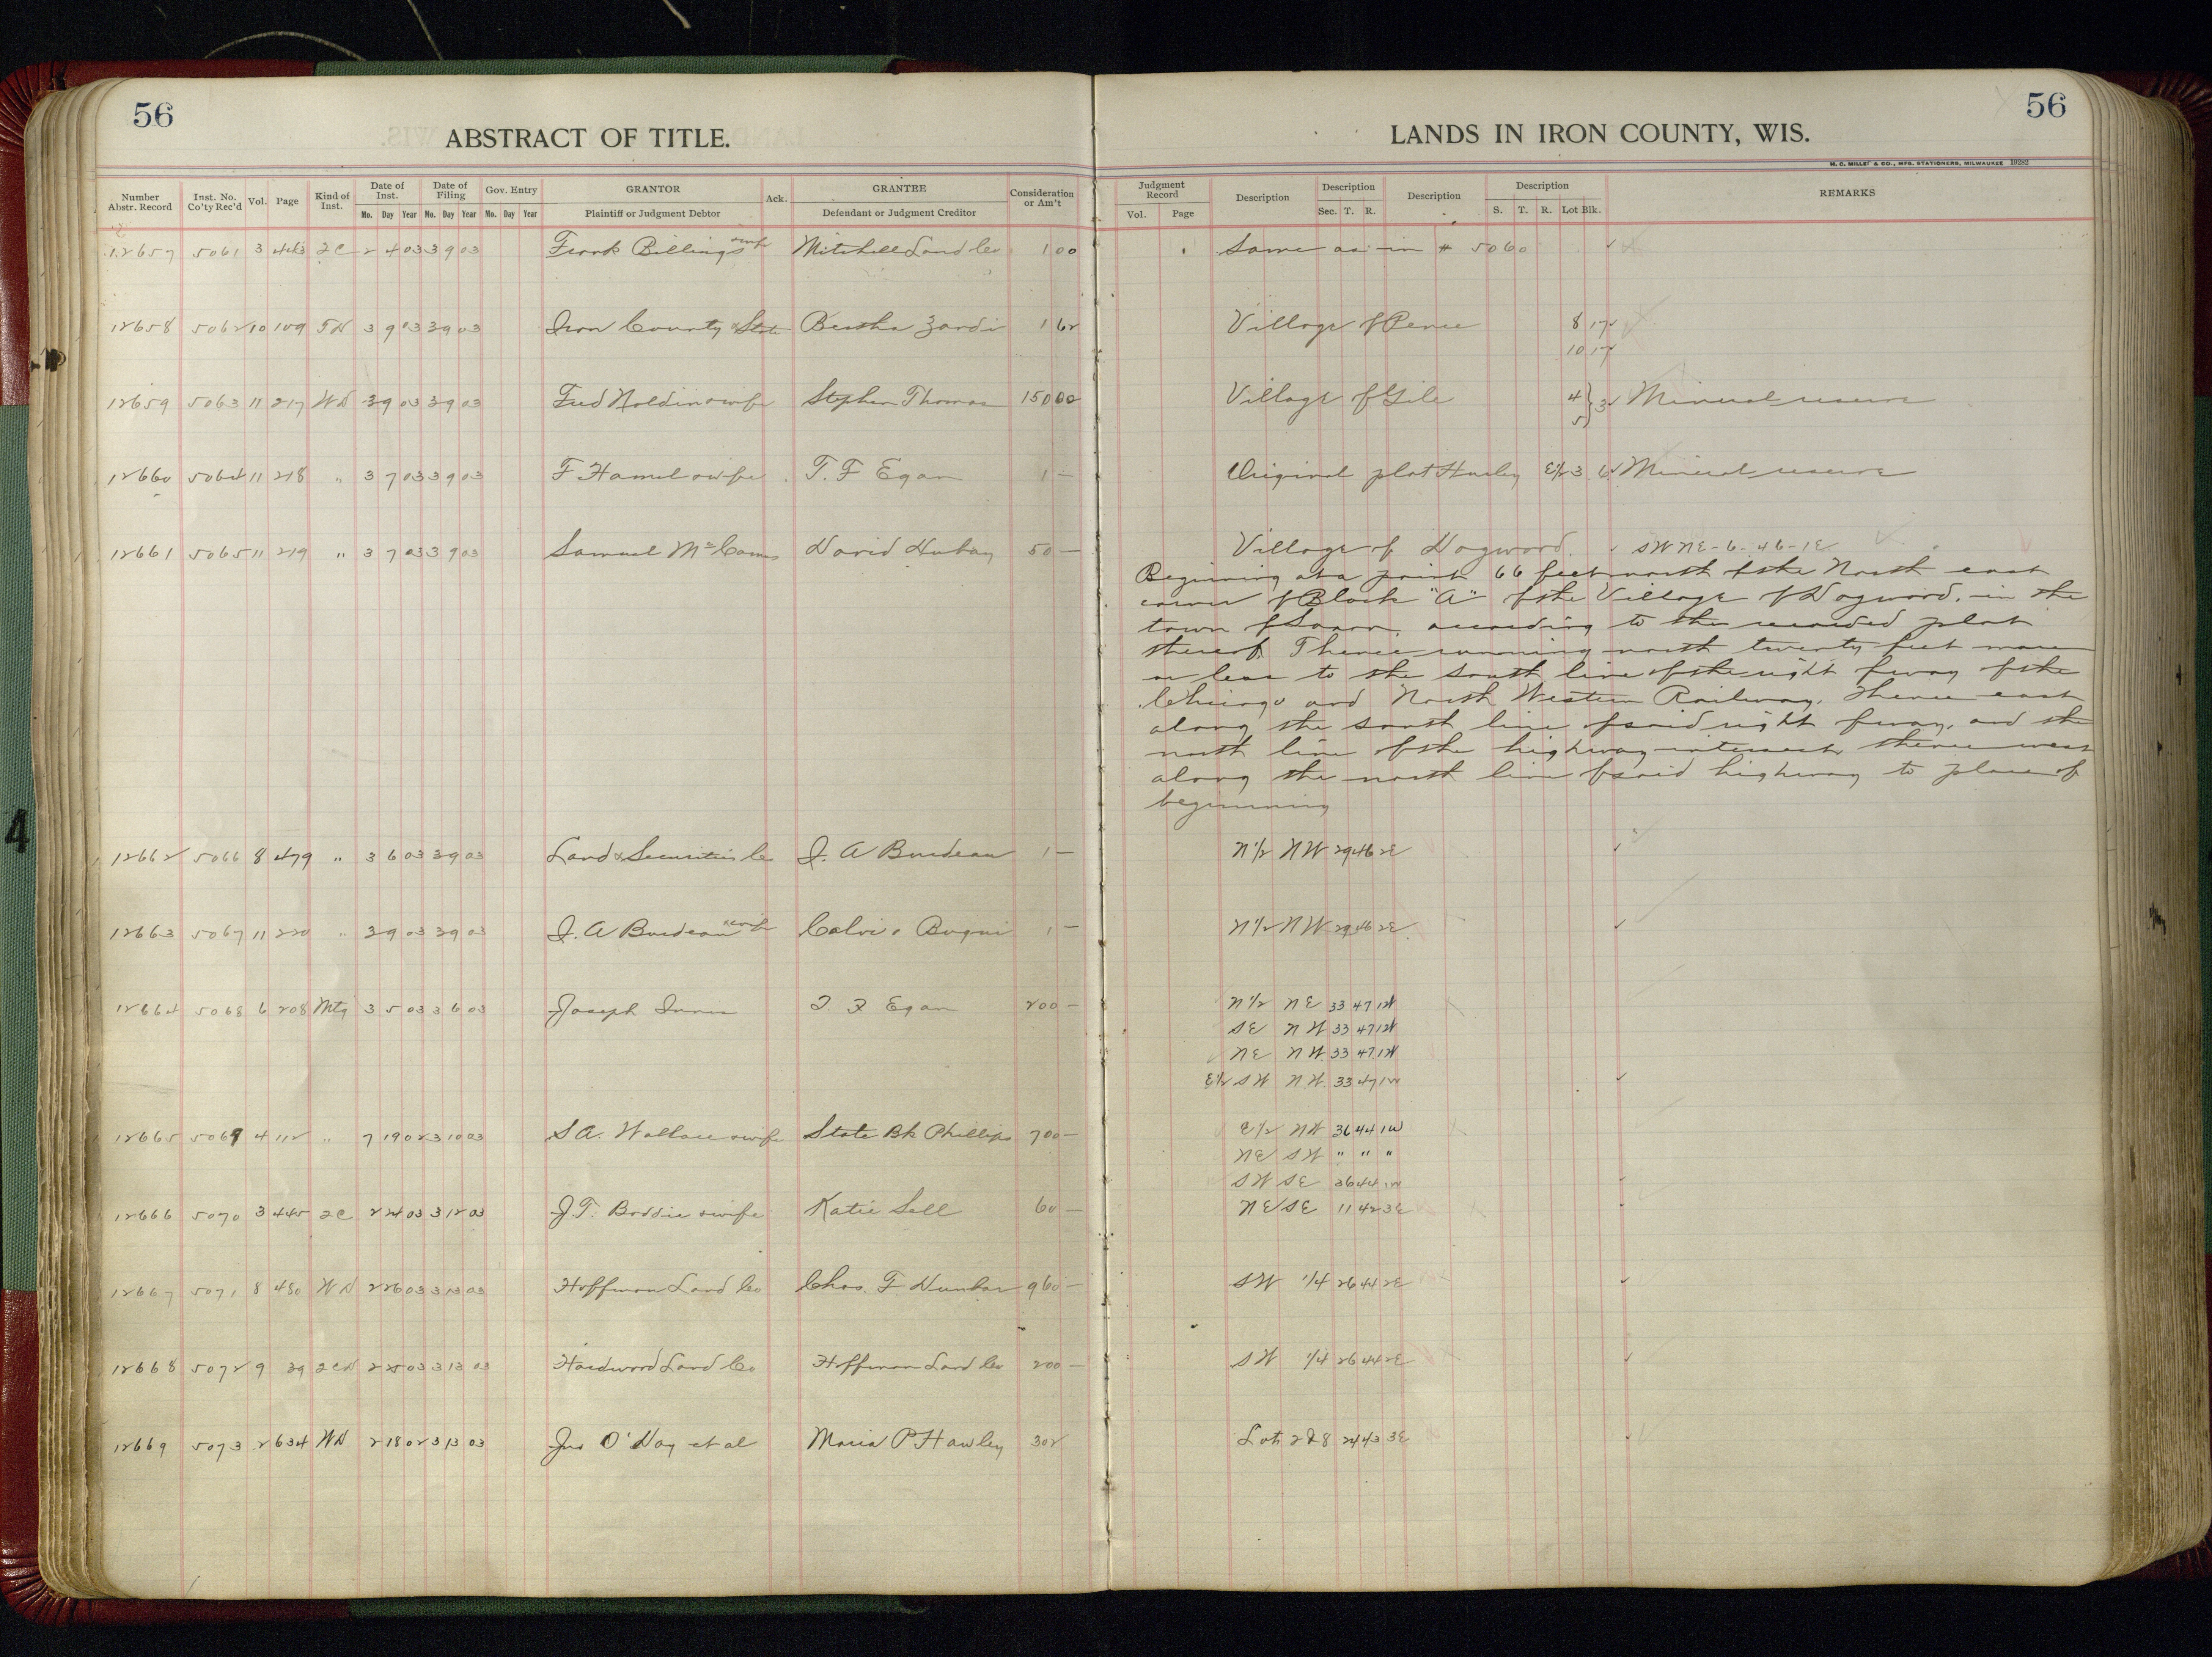 56
ABSTRACT OF TITLE.
LANDS IN IRON COUNTY, WIS.
56
H. C. MILLER & CO., MFG. STATIONERS, MILWAUKEE 19282
Number Abstr. Record Inst. No. Co'ty Rec'd Vol. Page Kind of Inst. Date of Inst. Date of Filing Gov. Entry GRANTOR Ack. GRANTEE Consideration or Am't Judgment Record Description Description Description Description REMARKS
Mo. Day Year Mo. Day Year Mo. Day Year Plaintiff or Judgment Debtor Defendant or Judgment Creditor Vol. Page Sec. T. R. S. T. R. Lot Blk.
12657 5061 3 443 2C 2 4 03 3 9 03 Frank Billings & wife Mitchell Land Co 1 00 Same as in # 5060
12658 5062 10 109 TD 3 9 03 3 9 03 Iron County & State Bertha Zardi 1 62 Village of Pence 8 17
10 17
12659 5063 11 217 WD 3 9 03 3 9 03 Fred Noldin & wife Stephen Thomas 150 00 Village of Gile 4 } 3 Mineral reserve
5
12660 5064 11 218 " 3 7 03 3 9 03 F Hamel & wife T. F Egan 1 — Original plat Hurley E1/2 3 6 Mineral reserve
12661 5065 11 219 " 3 7 03 3 9 03 Samuel McComs David 50 — Village of Dogwood. SW NE - 6 - 46 - 1E
Beginning at a point 66 feet north of the North east
corner of Block "A" of the Village of Dogwood, in the
town of Saxon, according to the recorded plat
thereof. Thence running north twenty feet more
or less to the south line of the right of way of the
Chicago and North Western Railway, thence east
along the south line of said right of way, and the
north line of the highway intersect, thence west
along the north line of said highway to place of
beginning
12662 5066 8 479 " 3 6 03 3 9 03 Land & Securities Co J. A Burdeau 1 — N1/2 NW 29 46 2E
12663 5067 11 220 " 3 9 03 3 9 03 J. A Burdeau & wife 1 — N1/2 NW 29 46 2E
12664 5068 6 208 Mtg 3 5 03 3 6 03 Joseph Innis T. F Egan 200 — N1/2 NE 33 47 1W
SE NW 33 47 1W
NE NW 33 47 1W
E1/2 SW NW 33 47 1W
12665 5069 4 112 " 7 19 02 3 10 03 S A. Wallace & wife State Bk Phillips 700 — E1/2 NW 36 44 1W
NE SW " " "
SW SE 36 44 1W
12666 5070 3 445 2C 2 24 03 3 12 03 J. T. Boddie & wife Katie Sell 60 — NE SE 11 42 3E
12667 5071 8 480 WD 2 26 03 3 13 03 Hoffman Land Co Chas. F Dunbar 960 — SW 1/4 26 44 2E
12668 5072 9 39 2CD 2 25 03 3 13 03 Hardwood Land Co Hoffman Land Co 200 — SW 1/4 26 44 2E
12669 5073 2 634 WD 2 18 02 3 13 03 Jno O'Day et al Maria P Hawley 302 Lots 2 & 8 24 43 3E